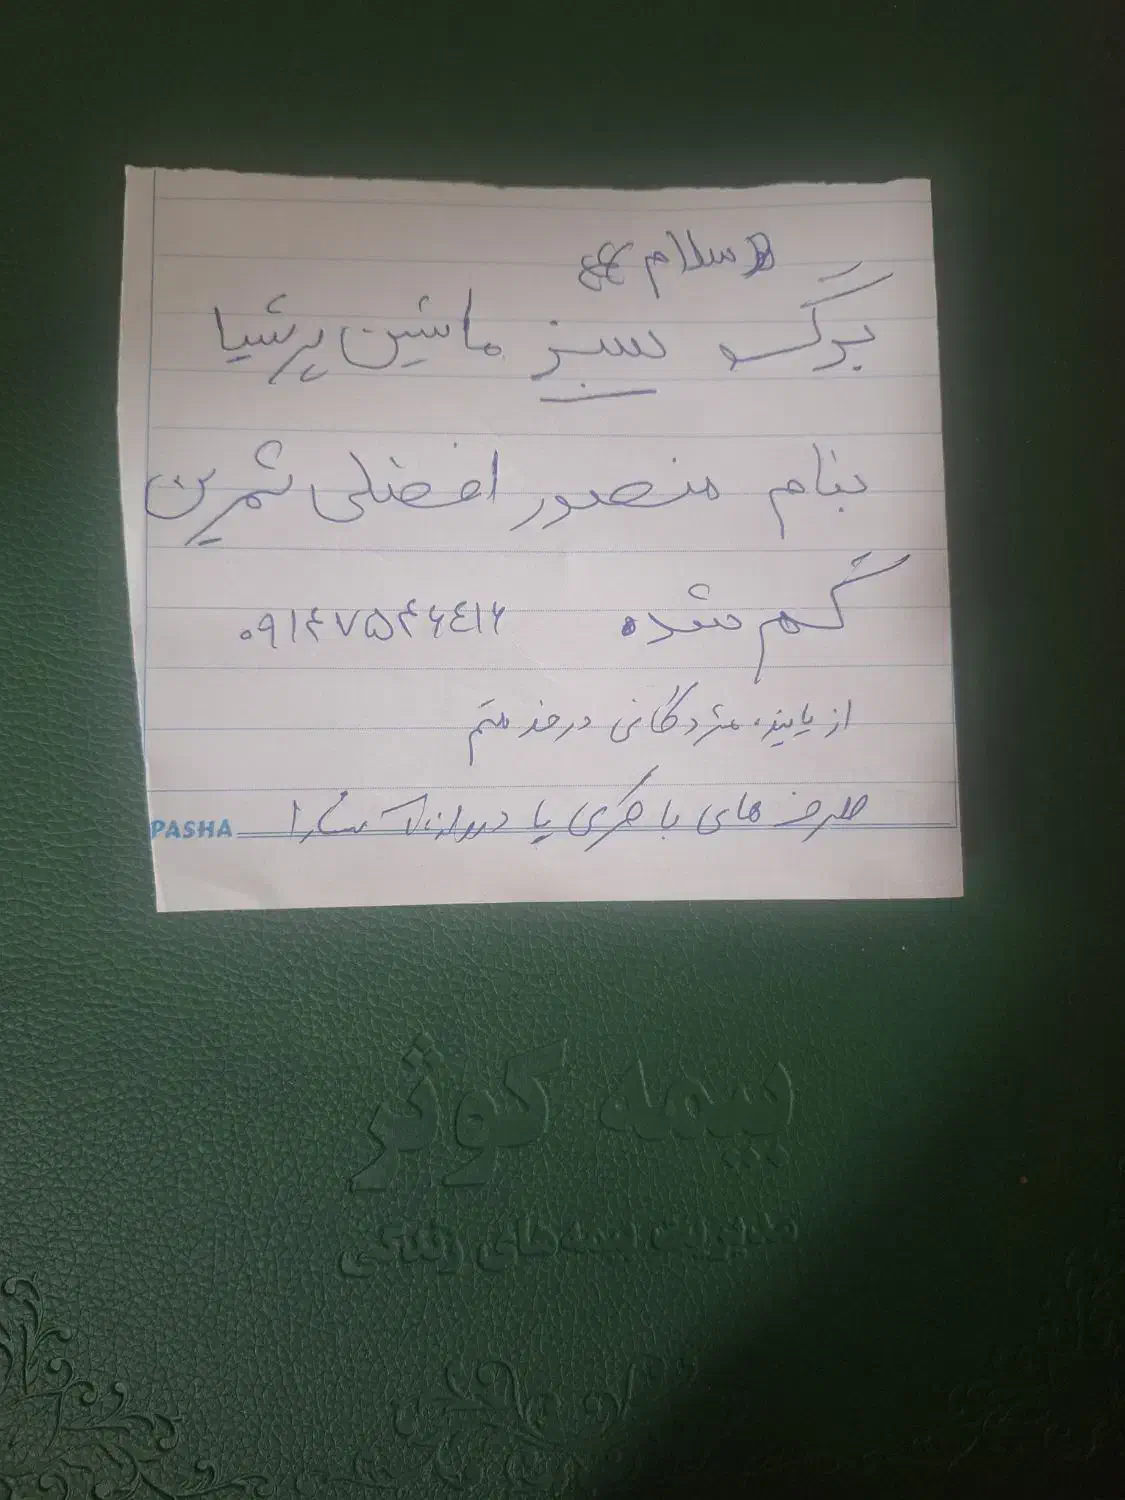 سلام
برگ سبز ماشین پرشیا
بنام منصور افضلی ثمرین
گم شده ۰۹۱۴۷۵۴۶۴۱۶
از یابنده مژدگانی در خدمتم
طرف های باکری یا دروازه آستارا
PASHA
بیمه کوثر
مدیریت بیمه‌های زندگی